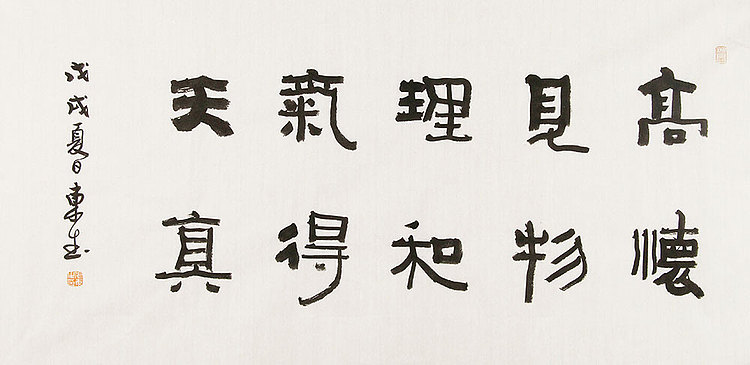 高懐
見物
理和
氣得
天真
戊戌夏日東生